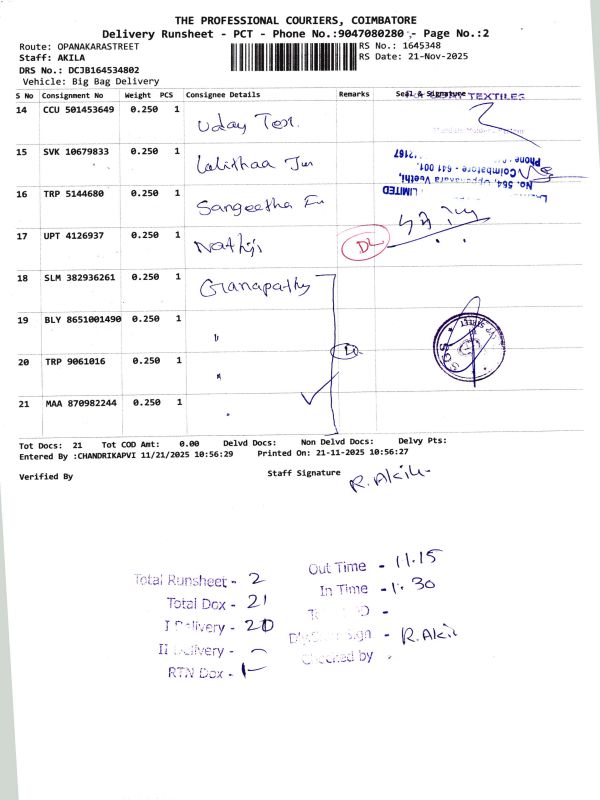 THE PROFESSIONAL COURIERS, COIMBATORE
Delivery Runsheet - PCT - Phone No.:9047080280 - Page No.:2
Route: OPANAKARASTREET RS No.: 1645348
Staff: AKILA RS Date: 21-Nov-2025
DRS No.: DCJB164534802
Vehicle: Big Bag Delivery
S No Consignment No Weight PCS Consignee Details Remarks Seal & Signature
TEXTILES
14 CCU 501453649 0.250 1 Uday Tex.
15 SVK 10679833 0.250 1 Lalithaa
Phone
12167
Coimbatore - 641 001.
No. 564, Oppanakara Veethi,
LIMITED
16 TRP 5144680 0.250 1 Sangeetha
17 UPT 4126937 0.250 1 Nathji DL
18 SLM 382936261 0.250 1 Ganapathy
19 BLY 8651001490 0.250 1 "
4
STREET
20 TRP 9061016 0.250 1 "
21 MAA 870982244 0.250 1
Tot Docs: 21 Tot COD Amt: 0.00 Delvd Docs: Non Delvd Docs: Delvy Pts:
Entered By :CHANDRIKAPVI 11/21/2025 10:56:29 Printed On: 21-11-2025 10:56:27
Verified By Staff Signature R. Akila
Total Runsheet - 2 Out Time - 11.15
Total Dox - 21 In Time - 1.30
I Delivery - 20
II Delivery - Sign - R.Akil
RTN Dox - 1 Checked by